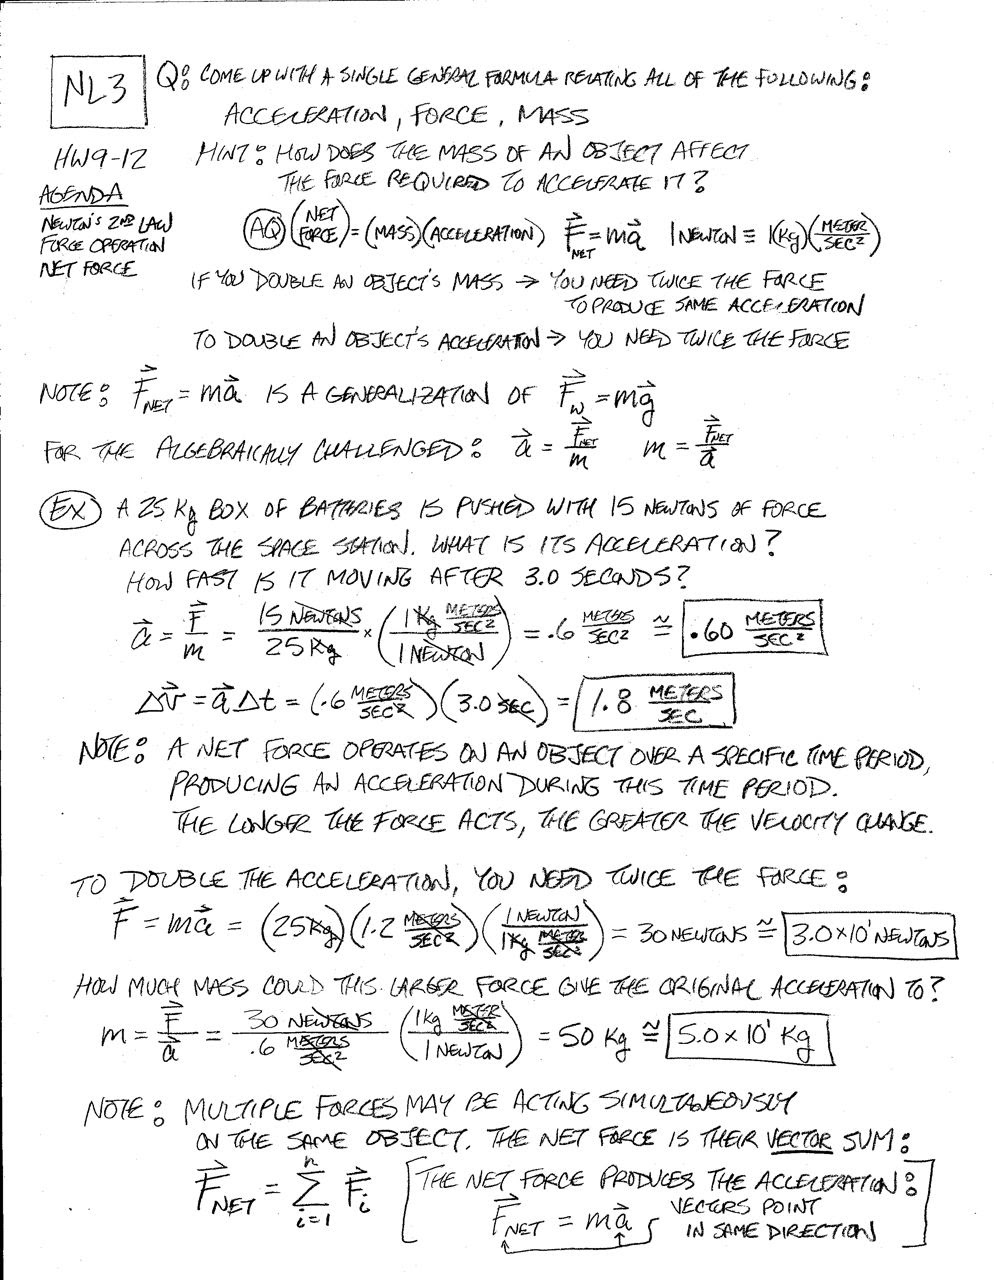 NL3
Q: COME UP WITH A SINGLE GENERAL FORMULA RELATING ALL OF THE FOLLOWING:
ACCELERATION, FORCE, MASS
HW9-12
HINT: HOW DOES THE MASS OF AN OBJECT AFFECT
THE FORCE REQUIRED TO ACCELERATE IT?
AGENDA
NEWTON'S 2ND LAW
FORCE OPERATION
NET FORCE
AQ (NET FORCE) = (MASS)(ACCELERATION) F⃗NET = ma⃗ 1 NEWTON ≡ 1(Kg)(METER/SEC²)
IF YOU DOUBLE AN OBJECT'S MASS → YOU NEED TWICE THE FORCE
TO PRODUCE SAME ACCELERATION
TO DOUBLE AN OBJECT'S ACCELERATION → YOU NEED TWICE THE FORCE
NOTE: F⃗NET = ma⃗ IS A GENERALIZATION OF F⃗W = mg⃗
FOR THE ALGEBRAICALLY CHALLENGED: a⃗ = F⃗NET/m m = F⃗NET/a⃗
EX A 25 Kg BOX OF BATTERIES IS PUSHED WITH 15 NEWTONS OF FORCE
ACROSS THE SPACE STATION. WHAT IS ITS ACCELERATION?
HOW FAST IS IT MOVING AFTER 3.0 SECONDS?
a⃗ = F⃗/m = 15 NEWTONS/25 Kg × (1 Kg METERS/SEC² / 1 NEWTON) = .6 METERS/SEC² ≅ .60 METERS/SEC²
Δv⃗ = a⃗ Δt = (.6 METERS/SEC²)(3.0 SEC) = 1.8 METERS/SEC
NOTE: A NET FORCE OPERATES ON AN OBJECT OVER A SPECIFIC TIME PERIOD,
PRODUCING AN ACCELERATION DURING THIS TIME PERIOD.
THE LONGER THE FORCE ACTS, THE GREATER THE VELOCITY CHANGE.
TO DOUBLE THE ACCELERATION, YOU NEED TWICE THE FORCE:
F⃗ = ma⃗ = (25Kg)(1.2 METERS/SEC²)(1 NEWTON / 1Kg METERS/SEC²) = 30 NEWTONS ≅ 3.0×10¹ NEWTONS
HOW MUCH MASS COULD THIS LARGER FORCE GIVE THE ORIGINAL ACCELERATION TO?
m = F⃗/a⃗ = 30 NEWTONS/.6 METERS/SEC² (1Kg METER/SEC² / 1 NEWTON) = 50 Kg ≅ 5.0×10¹ Kg
NOTE: MULTIPLE FORCES MAY BE ACTING SIMULTANEOUSLY
ON THE SAME OBJECT. THE NET FORCE IS THEIR VECTOR SUM:
F⃗NET = Σ i=1 n F⃗i
[THE NET FORCE PRODUCES THE ACCELERATION:
F⃗NET = ma⃗ VECTORS POINT
IN SAME DIRECTION]